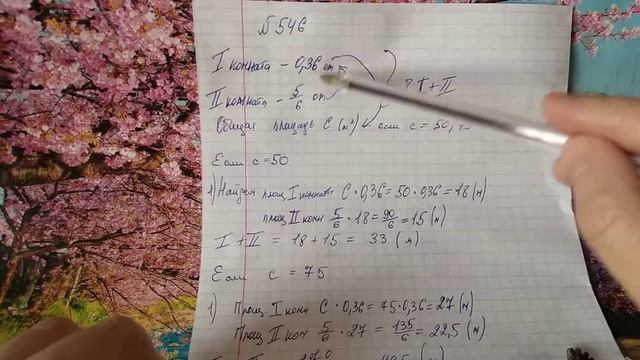 №546
I комната – 0,36 от
II комната – 5/6 от ? I + II
Общая площадь С (м²) если с = 50,
Если с = 50
1) Найдем площ I комнаты С · 0,36 = 50 · 0,36 = 18 (м)
площ II комн 5/6 · 18 = 90/6 = 15 (м)
I + II = 18 + 15 = 33 (м)
Если с = 75
1) Площ. I комн С · 0,36 = 75 · 0,36 = 27 (м)
Площ II ком 5/6 · 27 = 135/6 = 22,5 (м)